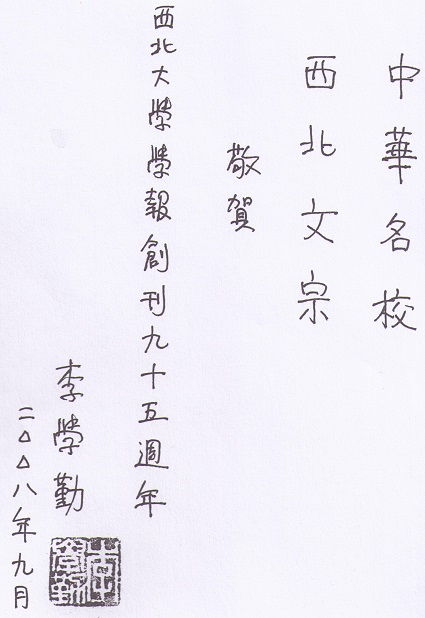 中華名校
西北文宗
敬賀
西北大學學報創刊九十五週年
李學勤
二〇〇八年九月